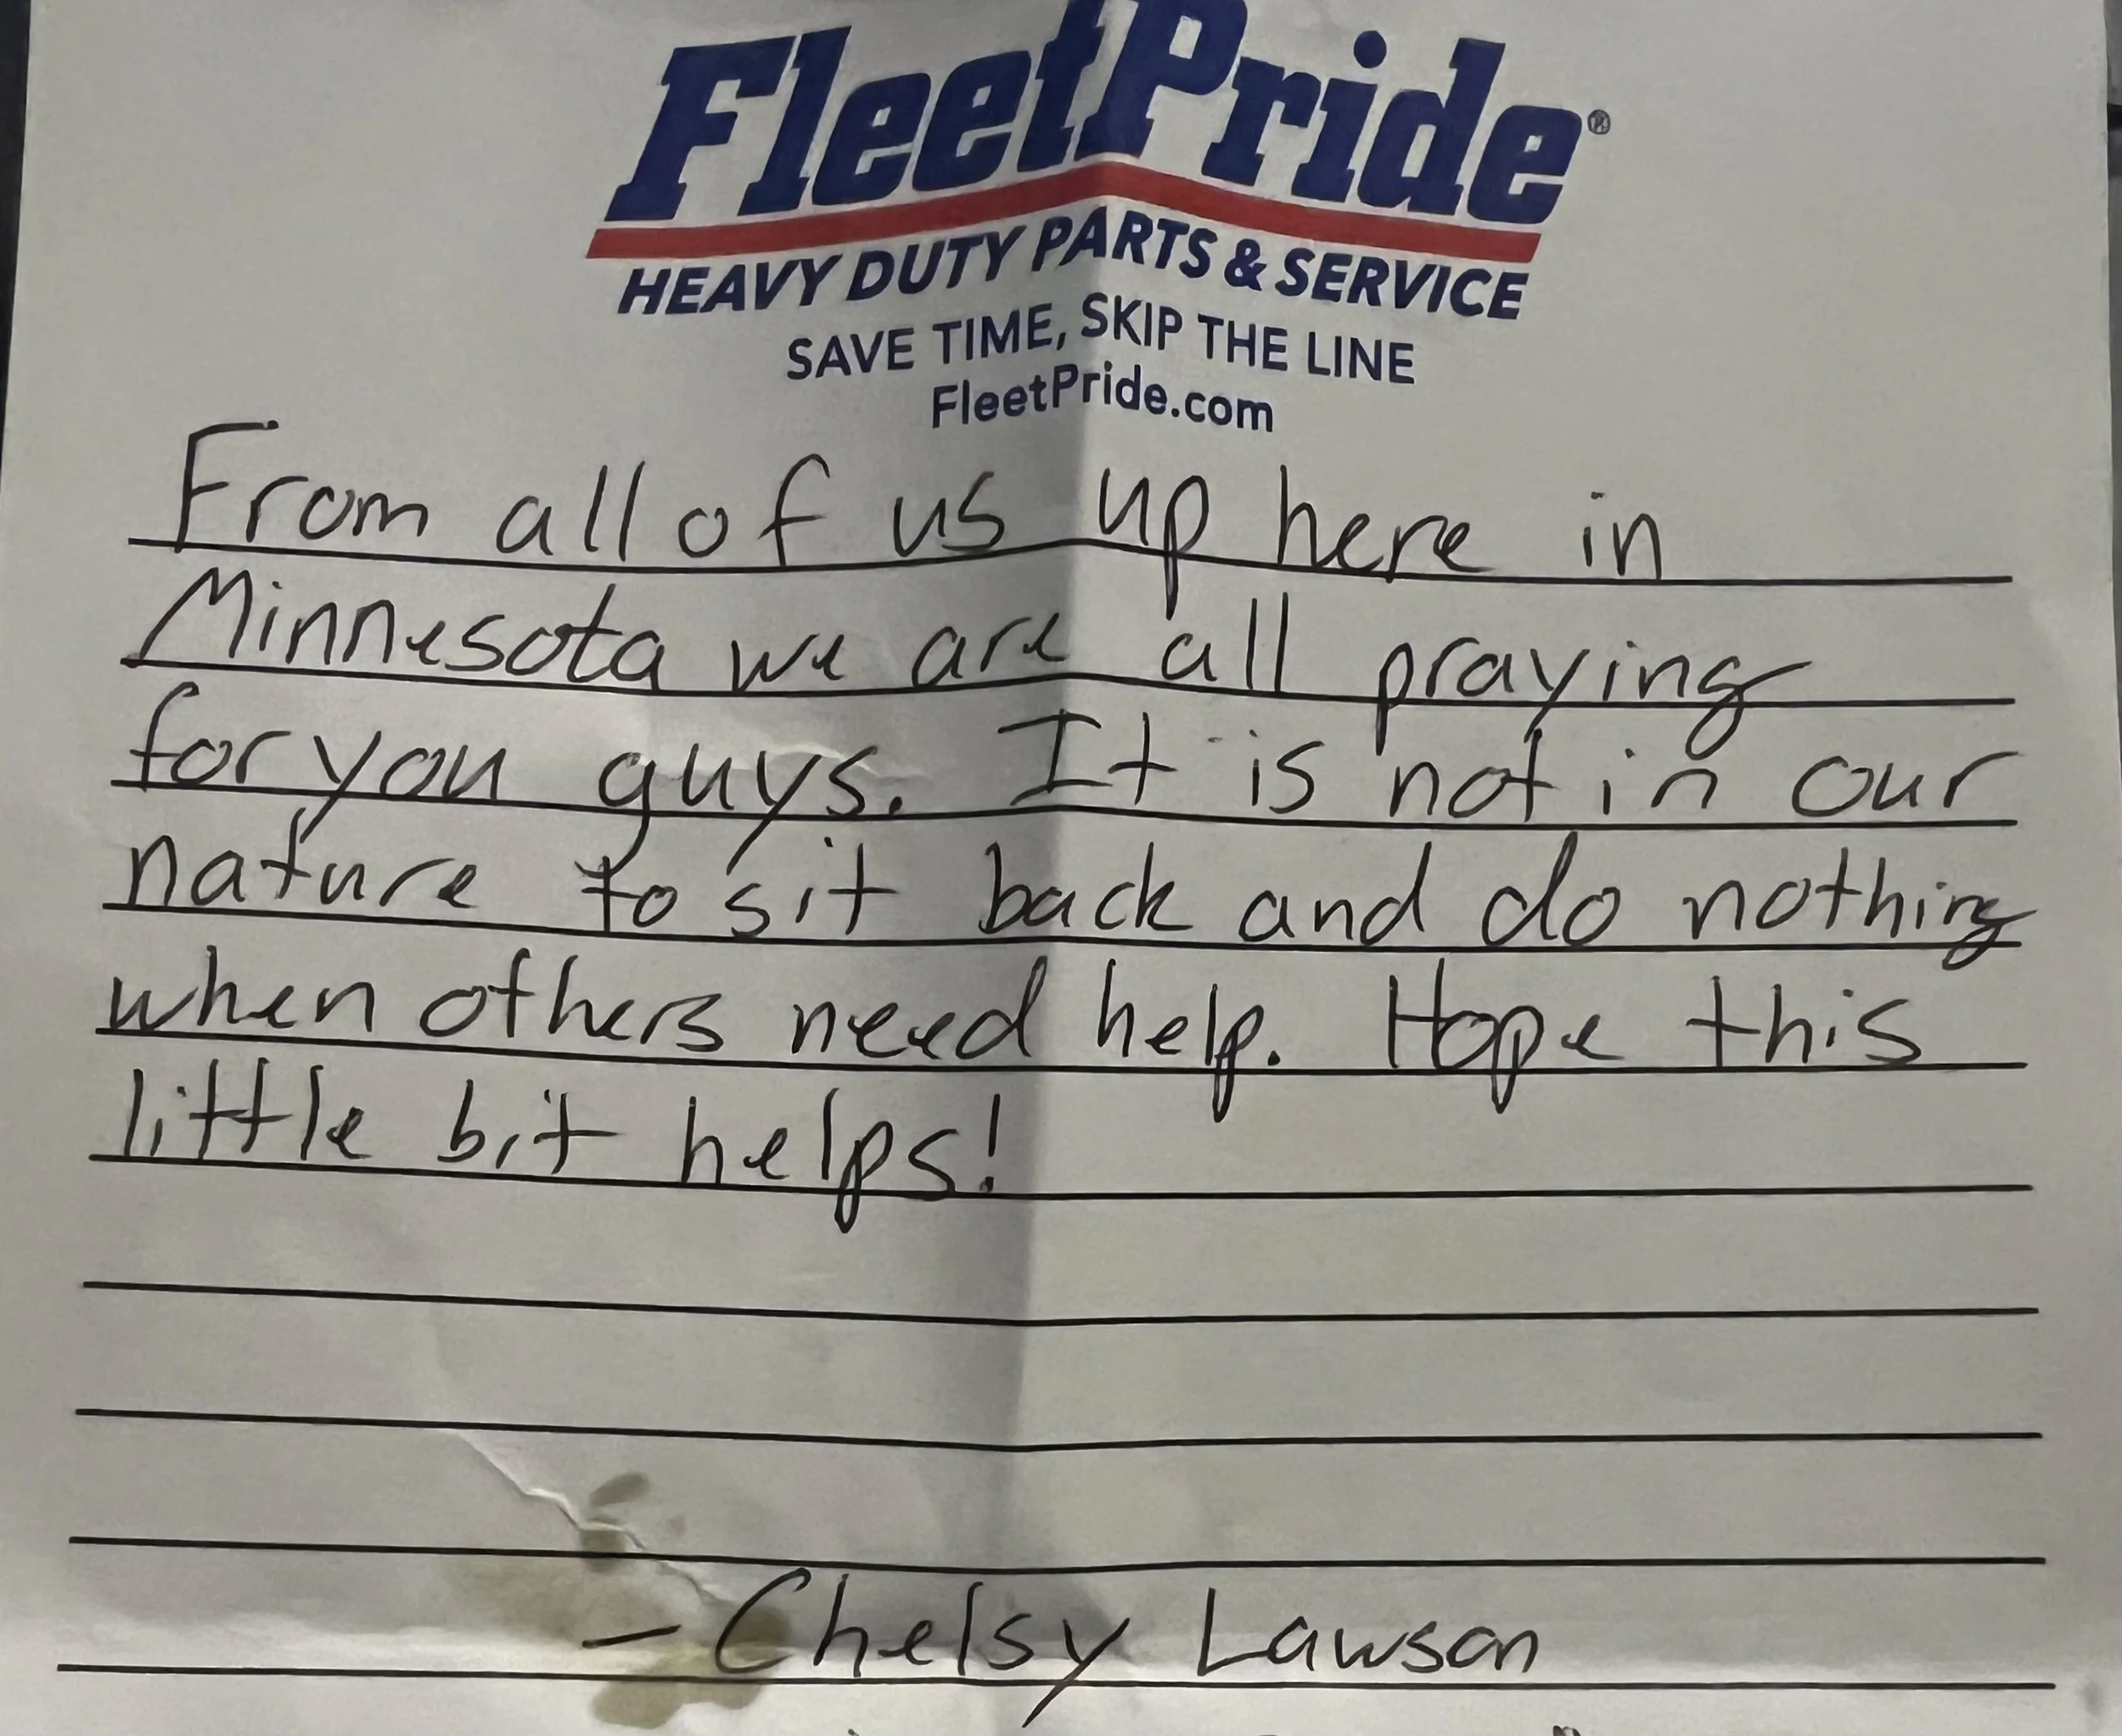 FleetPride®
HEAVY DUTY PARTS & SERVICE
SAVE TIME, SKIP THE LINE
FleetPride.com
From all of us up here in
Minnesota we are all praying
for you guys. It is not in our
nature to sit back and do nothing
when others need help. Hope this
little bit helps!
- Chelsy Lawson